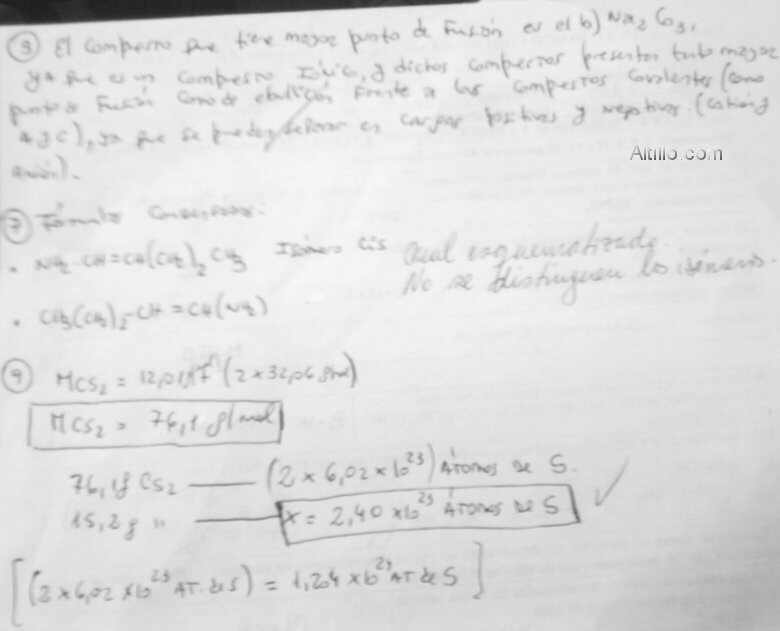 ③ El compuesto que tiene mayor punto de Fusión es el b) Na2CO3,
ya que es un compuesto Iónico, y dichos compuestos presentan tanto mayor
punto de Fusión como de ebullición frente a los compuestos covalentes (como
a y c), ya que se pueden separar en cargas positivas y negativas. (catión y
anión).
Altillo.com
⑦ Fórmula
• NH2-CH=CH(CH2)2CH3 Isómero cis Qual esquematizado.
No se distinguen los isómeros.
• CH3(CH2)2-CH=CH(NH2)
④ MCS2 = (2×32,06 g/mol)
MCS2 = 76,1 g/mol
76,1g CS2 —— (2 × 6,02 × 10^23) Átomos de S.
15,2 g " —— x = 2,40 × 10^23 Átomos de S ✓
[(2 × 6,02 × 10^23 AT. de S) = 1,204 × 10^24 AT de S]